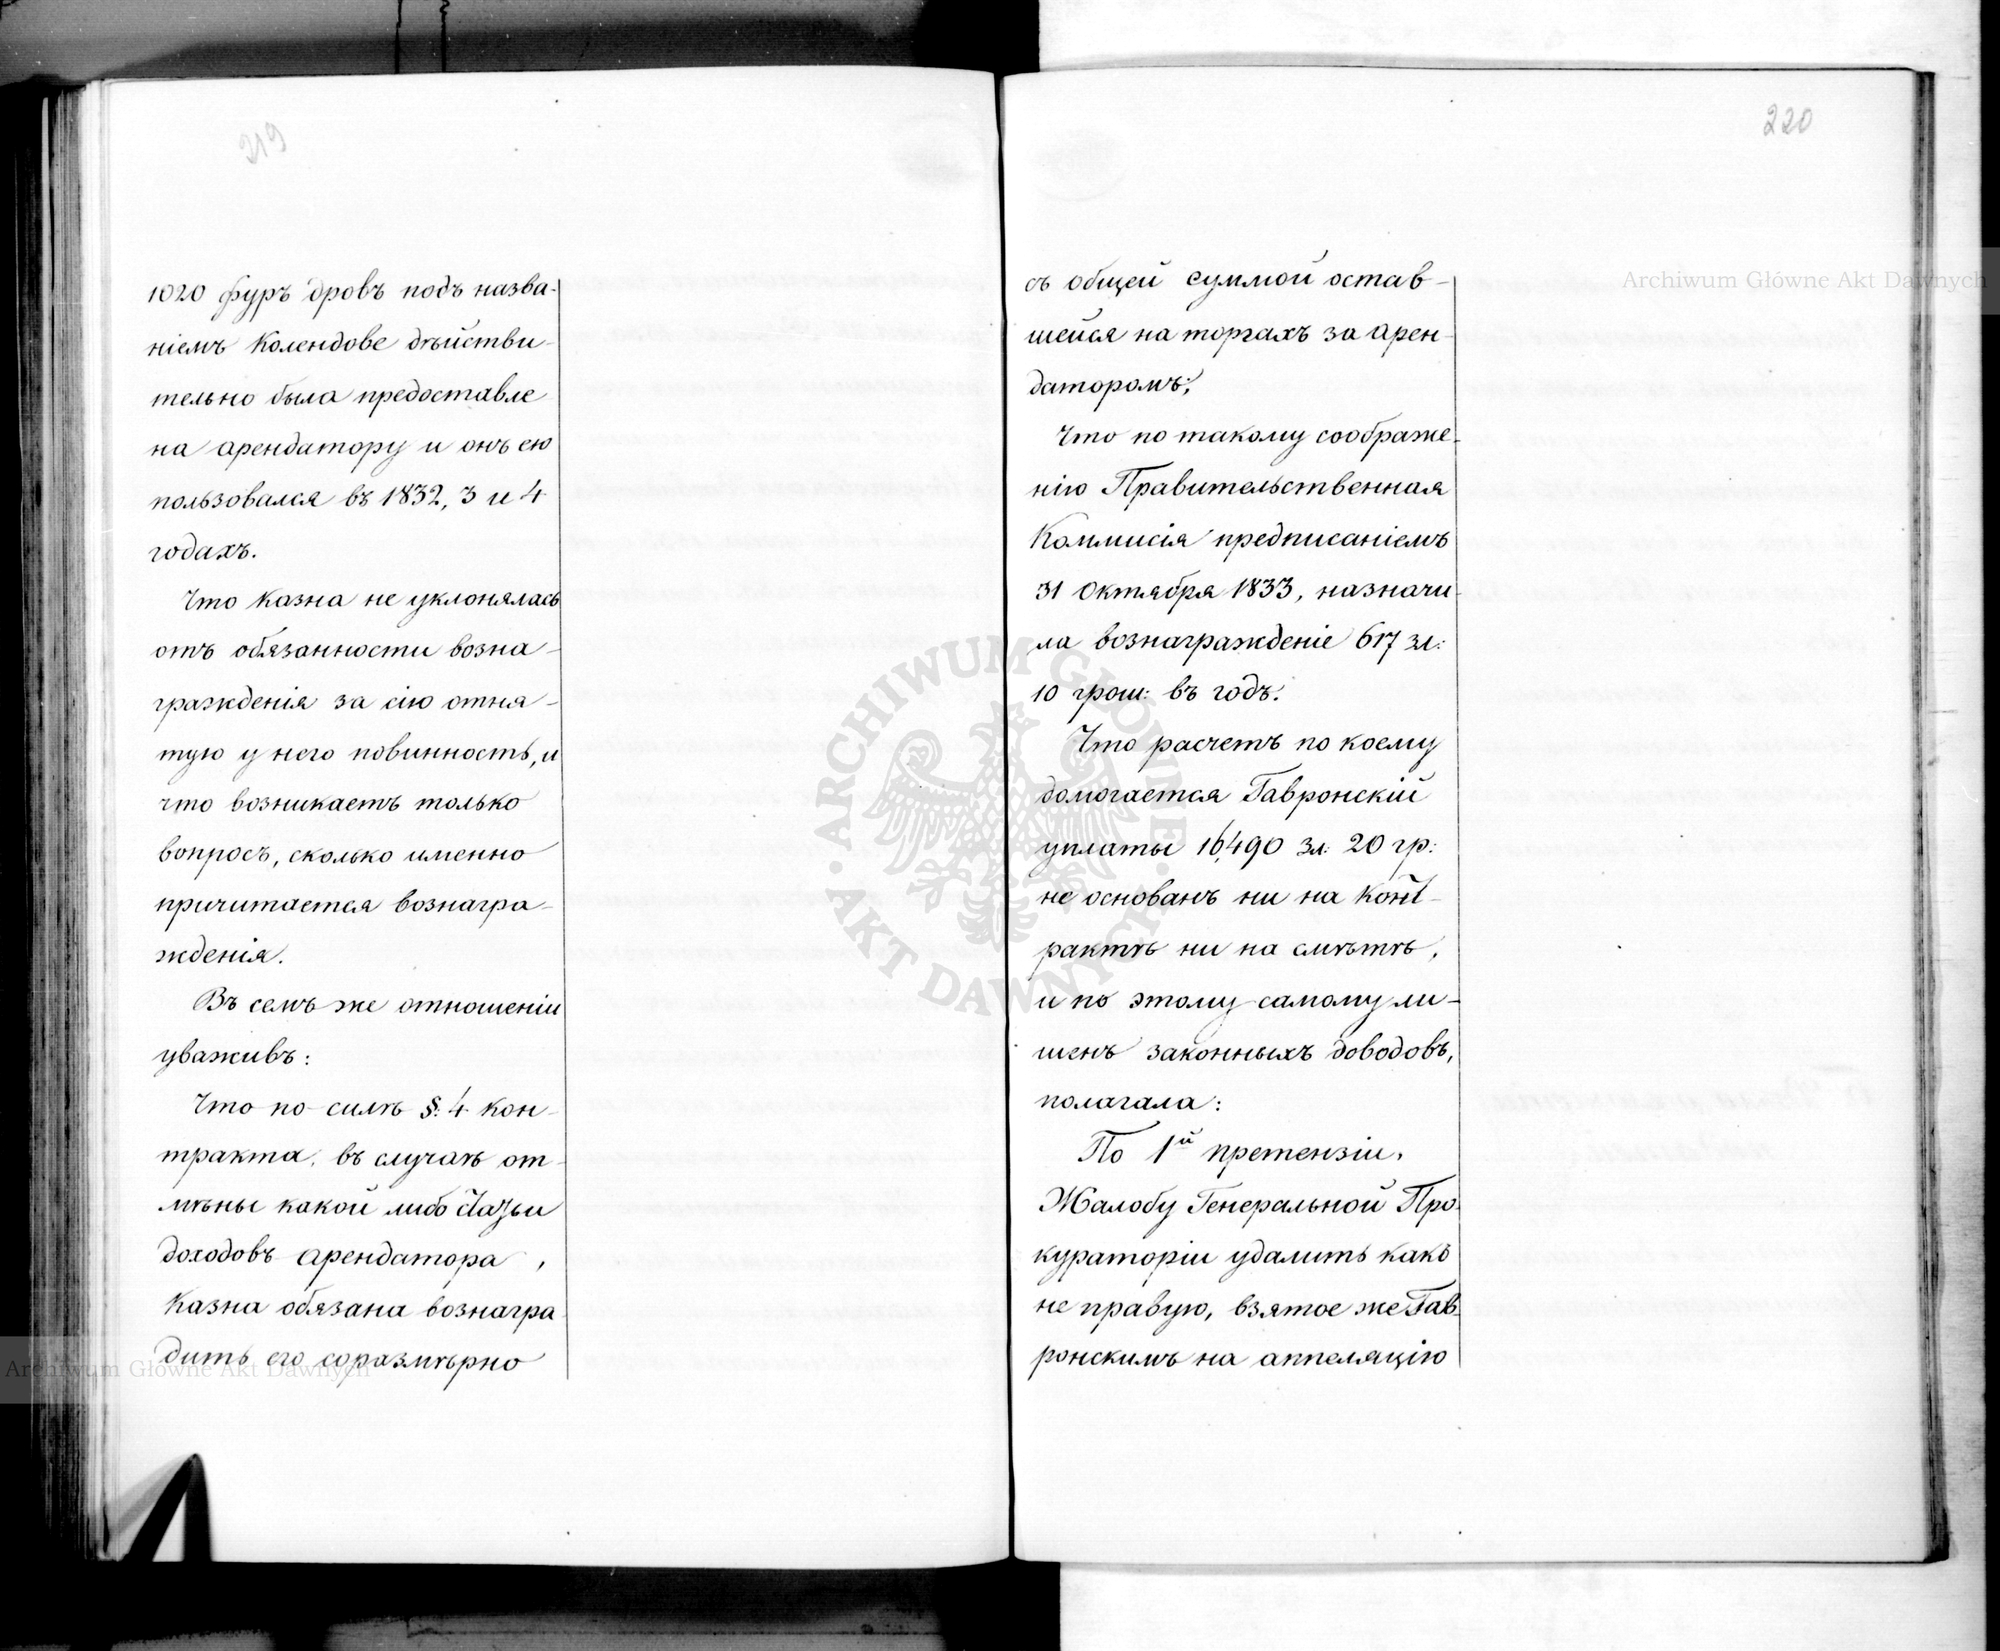 219
1020 фуръ дровъ подъ назва-
ніемъ Колендове дѣйстви-
тельно была предоставле
на арендатору и онъ ею
пользовался въ 1832, 3 и 4
годахъ.
Что казна не уклонялась
отъ обязанности возна-
гражденія за сію отня-
тую у него повинность, и
что возникаетъ только
вопросъ, сколько именно
причитается вознагра-
жденія.
Въ семъ же отношеніи
уваживъ:
Что по силѣ §. 4 кон-
тракта, въ случаѣ от-
мѣны какой либо
доходовъ арендатора,
казна обязана вознагра
дить его соразмѣрно
220
съ общей суммой остав-
шейся на торгахъ за арен-
даторомъ;
Что по такому соображе-
нію Правительственная
Коммисія предписаніемъ
31 Октября 1833, назначи-
ла вознагражденіе 617 зл:
10 грош: въ годъ.
Что расчетъ по коему
домогается Гавронскій
уплаты 16,490 зл: 20 гр:
не основанъ ни на конт-
рактѣ ни на смѣтѣ,
и по этому самому ли-
шенъ законныхъ доводовъ,
полагала:
По 1й претензіи,
Жалобу Генеральной Про-
кураторіи удалить какъ
не правую, взятое же Гав-
ронскимъ на аппеляцію
Archiwum Główne Akt Dawnych
Archiwum Główne Akt Dawnych
ARCHIWUM GŁÓWNE · AKT DAWNYCH ·